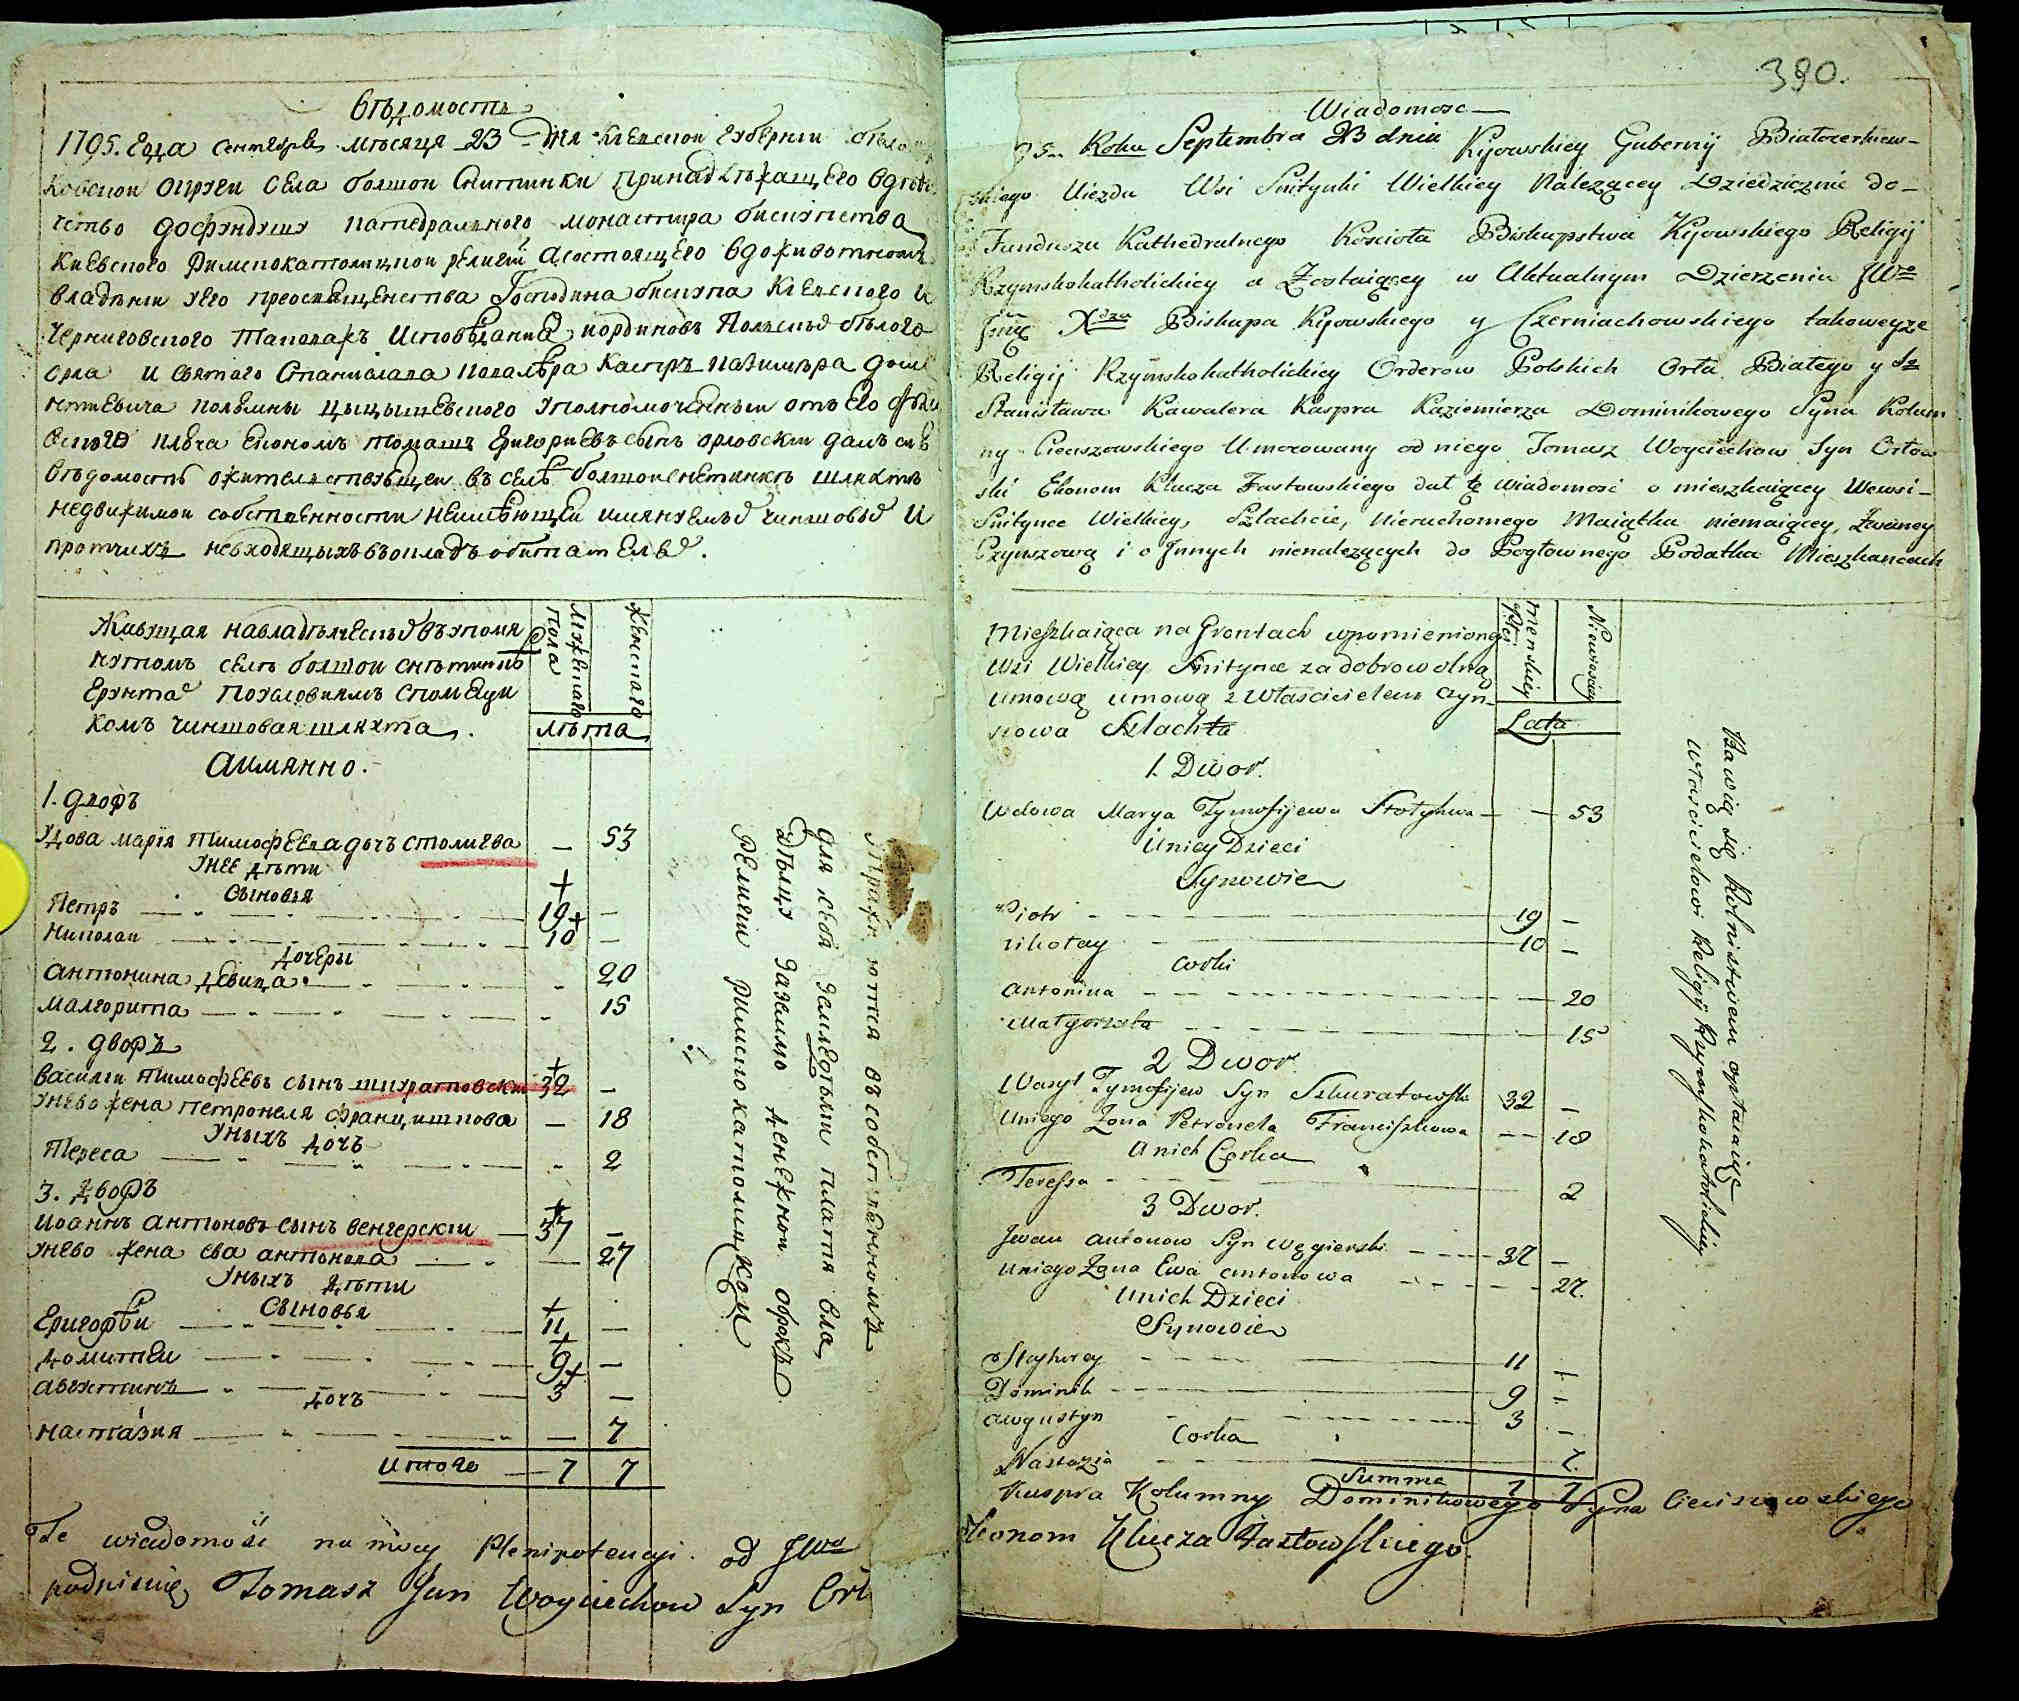 Вѣдомость
1795. Года Сентебря мѣсяца 23 дня Киевской Губернии
Околицы села болшой Снитинки принадлѣжащего
дофундушу катедралного монастира бискупства
Киевского Римскокатолицкой религии а состоящего
владѣнии его преосвященства Господина бискупа Киевского и
Черниговского Таполажъ исповѣдания ординовъ Полскыхъ бѣлого
орла и святаго Станислава кавалѣра Каспръ Казимѣра доми
никевича Колюмны Цыцышевского уполномоченным отъ его
ключа економъ Томашъ Григориевъ сынъ орловскии далъ сию
вѣдомость о жителствующеи въ селѣ болшои снетинкѣ шляхтѣ
недвижимои собственности неимѣющеи имянуемыхъ чиншовых и
протчихъ невходящыхъ въ окладъ обитателяхъ.
Живущая навладѣлческихъ въ упомя
нутомъ селѣ болшои снѣтинкѣ
грунтах поусловиямъ спомѣщи
комъ чиншовая шляхта.
мужеска пола
женскаго
лѣта
а имянно.
1. дворъ
Удова Мария Тимофеева дочъ столигва — 53
Унее дѣти
сыновья
Петръ 19 —
Николаи 10 —
дочери
антонина девица 20
малгорита 15
2. дворъ
василии Тимофѣевъ сынъ шкуратовски 32 —
унево жена петронеля францишкова — 18
Уныхъ дочъ
Тереса 2
3. дворъ
иоаннъ антоновъ сынъ венгерскии 37 —
унево жена ева антонова — 27
Уныхъ дѣти
Сыновья
Григорѣи 11 —
доминикъ 9 —
августинъ 3 —
дочъ
настазия — 7
итого 7 7
въ собственномъ
для себя земледѣлии платя вла
дѣлцу заземлю денежнои оброкъ
религии римскокатолицкои
Te wiadomość na mocy Plenipotencyi od JWo
podpisuię Tomasz Jan Woyciechow Syn Orł
380.
Wiadomosc
95 Roku Septembra 23 dnia Kijowskiey Gubernij Białocerkiew-
skiego Uiezdu Wsi Snitynki Wielkiey Należącey Dziedzicznie do-
Funduszu Kathedralnego Kościoła Biskupstwa Kijowskiego Religij
Rzymskokatholickiey a Zostaiącey w Aktualnym Dzierżeniu JWo
Jmć Xdza Biskupa Kijowskiego y Czerniachowskiego takoweyże
Religij Rzymskokatholickiey Orderow Polskich Orła Białego y Sgo
Stanisława Kawalera Kaspra Kazimierza Dominikowego Syna Kolum
ny Cieciszowskiego Umocowany od niego Tomasz Woyciechow Syn Orłow
ski Ekonom Klucza Fastowskiego dał tę wiadomość o mieszkaiącey Wewsi-
Snitynce Wielkiey, Szlachcie, Nieruchomego Maiątku niemaiącey, Zwaney
Czynszową i o Innych nienależących do Pogłownego Podatku Mieszkancach
Mieszkaiąca na Grontach wpomnioney
Wsi Wielkiey Snitynce za dobrowolną
umową umową z Właścicielem czyn-
szowa Szlachta
Menskiey Płci
Niewieściey
Lata
1. Dwor.
Wdowa Marya Tymofijewa Stołyhwa — — 53
Uniey Dzieci
Synowie
Piotr 19 —
Mikołay 10 —
Corki
Antonina — 20
Małgorzata — 15
2 Dwor.
Wasyl Tymofijew Syn Szkuratowski 32 —
Uniego Zona Petronela Franciszkowa — 18
Unich Corka
Teressa 2
3 Dwor.
Jwan Antonow Syn Węgierski 37 —
Uniego Zona Ewa Antonowa 27.
Unich Dzieci
Synowie
Hryhorey 11 —
Dominik 9 —
Augustyn 3 —
Corka
Nastazia 7.
Summa 7 7
Bawią się Rolnistwem opłaiaiąc
Właścicielowi Religij Rzymskokatholickiey
Kaspra Kolumny Dominikowego Syna Cieciszowskiego
Ekonom Klucza Fastowskiego.